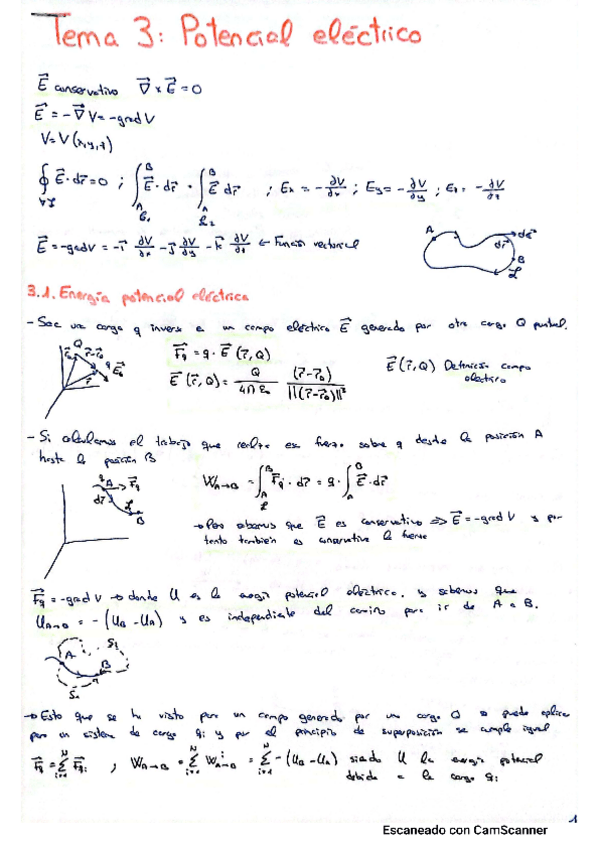 Tema 3: Potencial eléctrico
E⃗ conservativo ∇⃗ × E⃗ = 0
E⃗ = -∇⃗ V = -grad V
V = V(x,y,z)
∮ E⃗·dr⃗ = 0 ; ∫_A^B E⃗·dr⃗ = ∫_A^B E⃗ dr⃗ ; Ex = -∂V/∂x ; Ey = -∂V/∂y ; Ez = -∂V/∂z
E⃗ = -grad V = -i⃗ ∂V/∂x - j⃗ ∂V/∂y - k⃗ ∂V/∂z ← Función vectorial
A dr⃗ dr⃗ B L
3.1. Energía potencial eléctrica
- Sea una carga q inversa a un campo eléctrico E⃗ generado por otra carga Q puntual.
F⃗q = q · E⃗ (r⃗, Q)
E⃗ (r⃗, Q) = Q/(4πε₀) (r⃗-r⃗₀)/||(r⃗-r⃗₀)||³
E⃗(r⃗,Q) Definición campo
eléctrico
- Si calculamos el trabajo que realiza esa fuerza sobre q desde la posición A
hasta la posición B
W_A→B = ∫_A^B F⃗q · dr⃗ = q · ∫_A^B E⃗ · dr⃗
q A F⃗q
dr⃗ L B
→ Pero sabemos que E⃗ es conservativo ⇒ E⃗ = -grad V y por
tanto también es conservativa la fuerza
F⃗q = -grad V → donde U es la energía potencial eléctrica, y sabemos que
U_A→B = -(U_B - U_A) y es independiente del camino para ir de A a B.
A B S₁
→ Esto que se ha visto para un campo generado por una carga Q se puede aplicar
para un sistema de carga qi y por el principio de superposición se cumple igual
F⃗q = Σ_{i=1}^N F⃗qi ; W_A→B = Σ_{i=1}^N W^i_A→B = Σ_{i=1}^N -(U_B - U_A) siendo U la energía potencial
debida a la carga qi
1
Escaneado con CamScanner